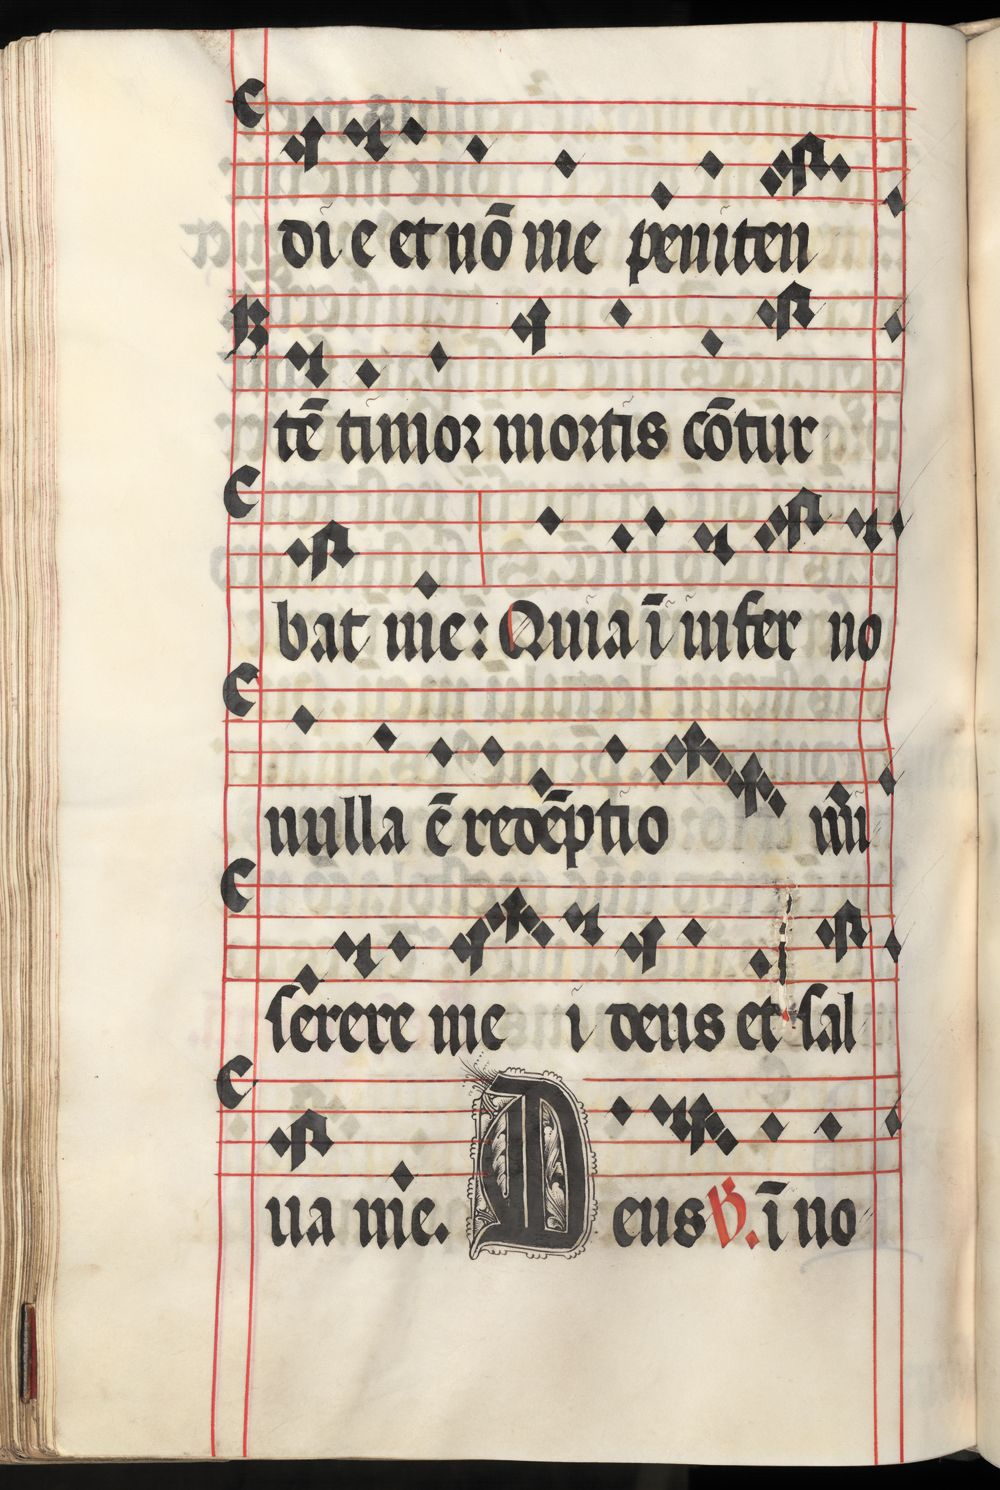 di e et nō me peniten
tē timor mortis cōtur
bat me: Quia ī infer no
nulla ē redēptio mi
serere me i deus et sal
ua me. Deus ℣. ī no